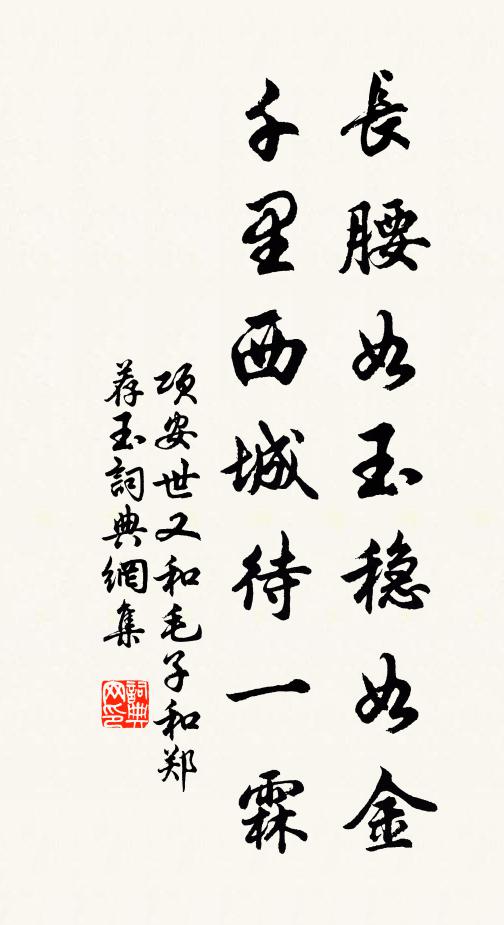 長腰如玉穩如金
千里西城待一霖
項安世又和毛子和郑
荐玉詞典網集
詞典网印